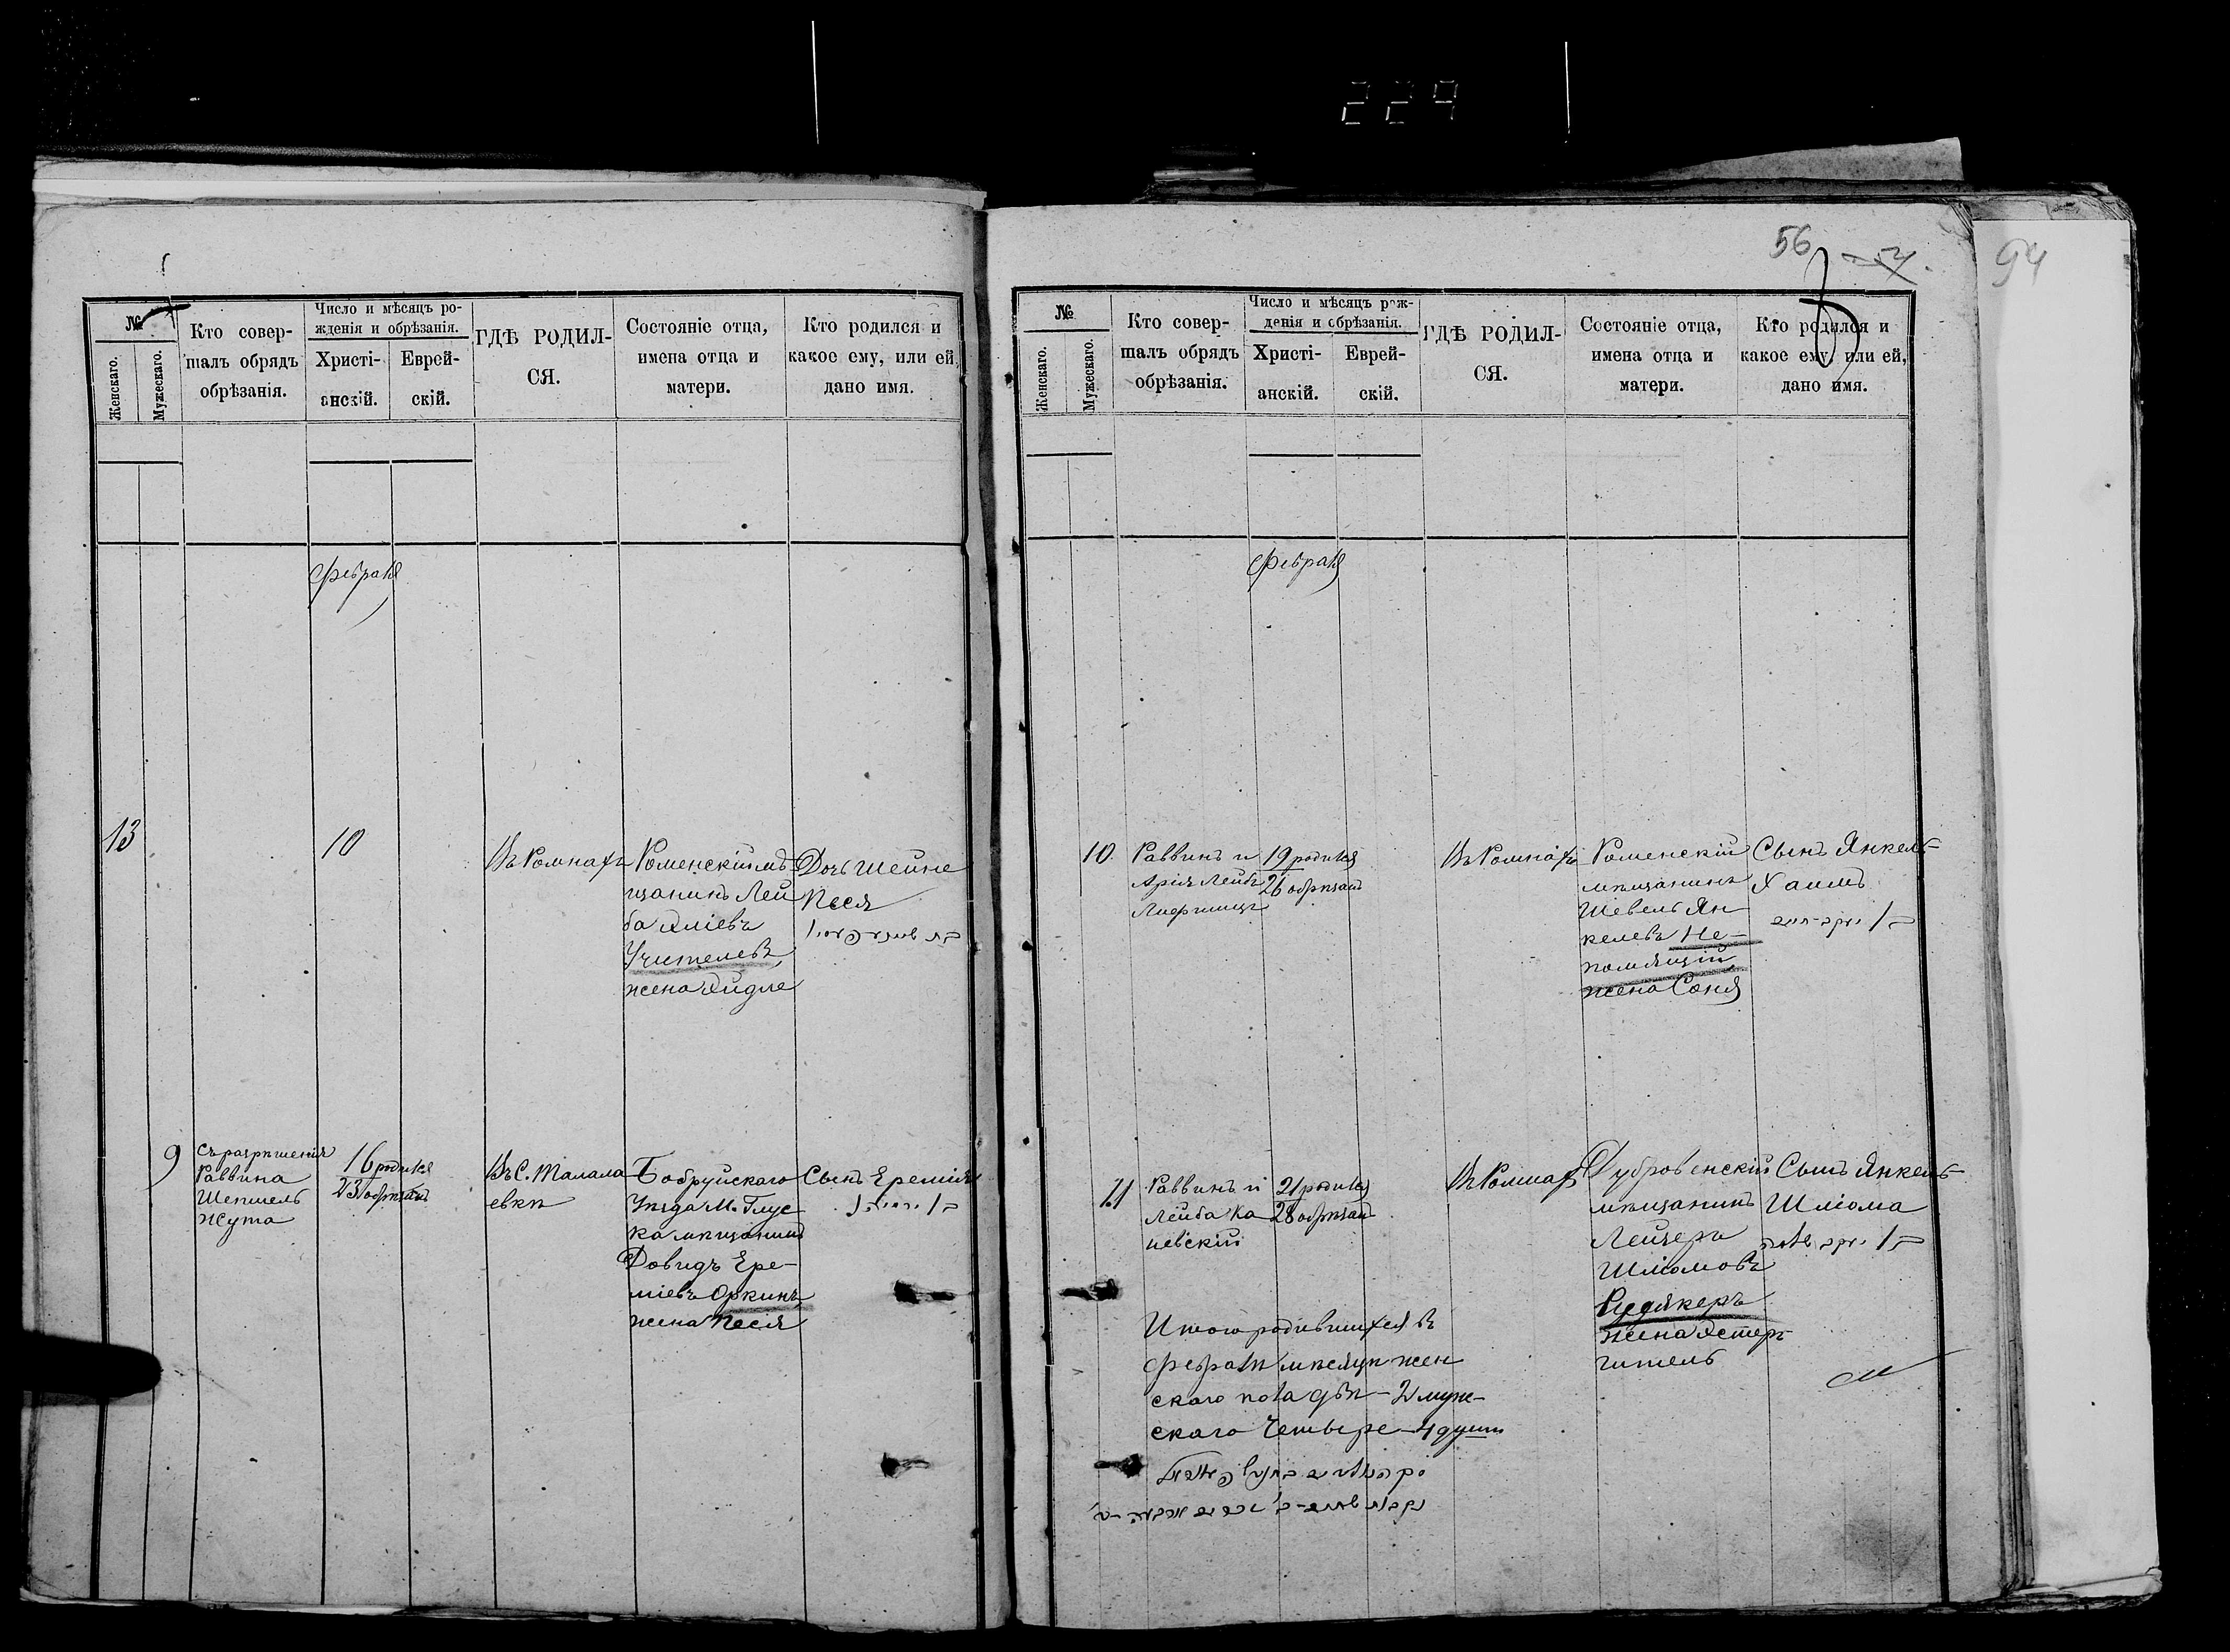 224
56
94
№
Женскаго.
Мужескаго.
Кто совер-
шалъ обрядъ
обрѣзанія.
Число и мѣсяцъ ро-
жденія и обрѣзанія.
Христі-
анскій.
Еврей-
скій.
ГДѢ РОДИЛ-
СЯ.
Состояніе отца,
имена отца и
матери.
Кто родился и
какое ему, или ей,
дано имя.
Февраля
13
10
Въ Ромнахъ
Роменскій мѣ
щанинъ Лей
ба
Учителевъ,
жена Айдле
Дочь Шейне
Песя
בת שיינע פעסי
9
Съ разрѣшенія
Раввина
Шепшель
Жута
16 родился
23 обрѣзанъ
Въ С. Талала
евкѣ
Бобруйскаго
Уѣзда М. Глус
ка мѣщанинъ
Довидъ Ере-
міевъ Оркинъ,
жена Песя
Сынъ Еремія
בן ירמי׳
№
Женскаго.
Мужескаго.
Кто совер-
шалъ обрядъ
обрѣзанія.
Число и мѣсяцъ рож-
денія и обрѣзанія.
Христі-
анскій.
Еврей-
скій.
ГДѢ РОДИЛ-
СЯ.
Состояніе отца,
имена отца и
матери.
Кто родился и
какое ему, или ей,
дано имя.
Февраля
10
Раввинъ и
Арія Лейбъ
Лифшицъ
19 родился
26 обрѣзанъ
Въ Ромнахъ
Роменскій
мѣщанинъ
Шевель Ян-
келевъ Не-
помящій,
жена Соня
Сынъ Янкель
Хаимъ
בן יעקב חיים
11
Раввинъ и
Лейба Ка
невскій
21 родился
28 обрѣзанъ
Въ Ромнахъ
Дубровенскій
мѣщанинъ
Лейзеръ
Шліомовъ
Рудякеръ
жена Эстеръ
Гитель
Сынъ Янкель
Шліома
בן יעקב שלמה
Итого родившихся въ
Февралѣ мѣсяцѣ жен
скаго пола двѣ – 2 муж-
скаго Четыре – 4 душъ